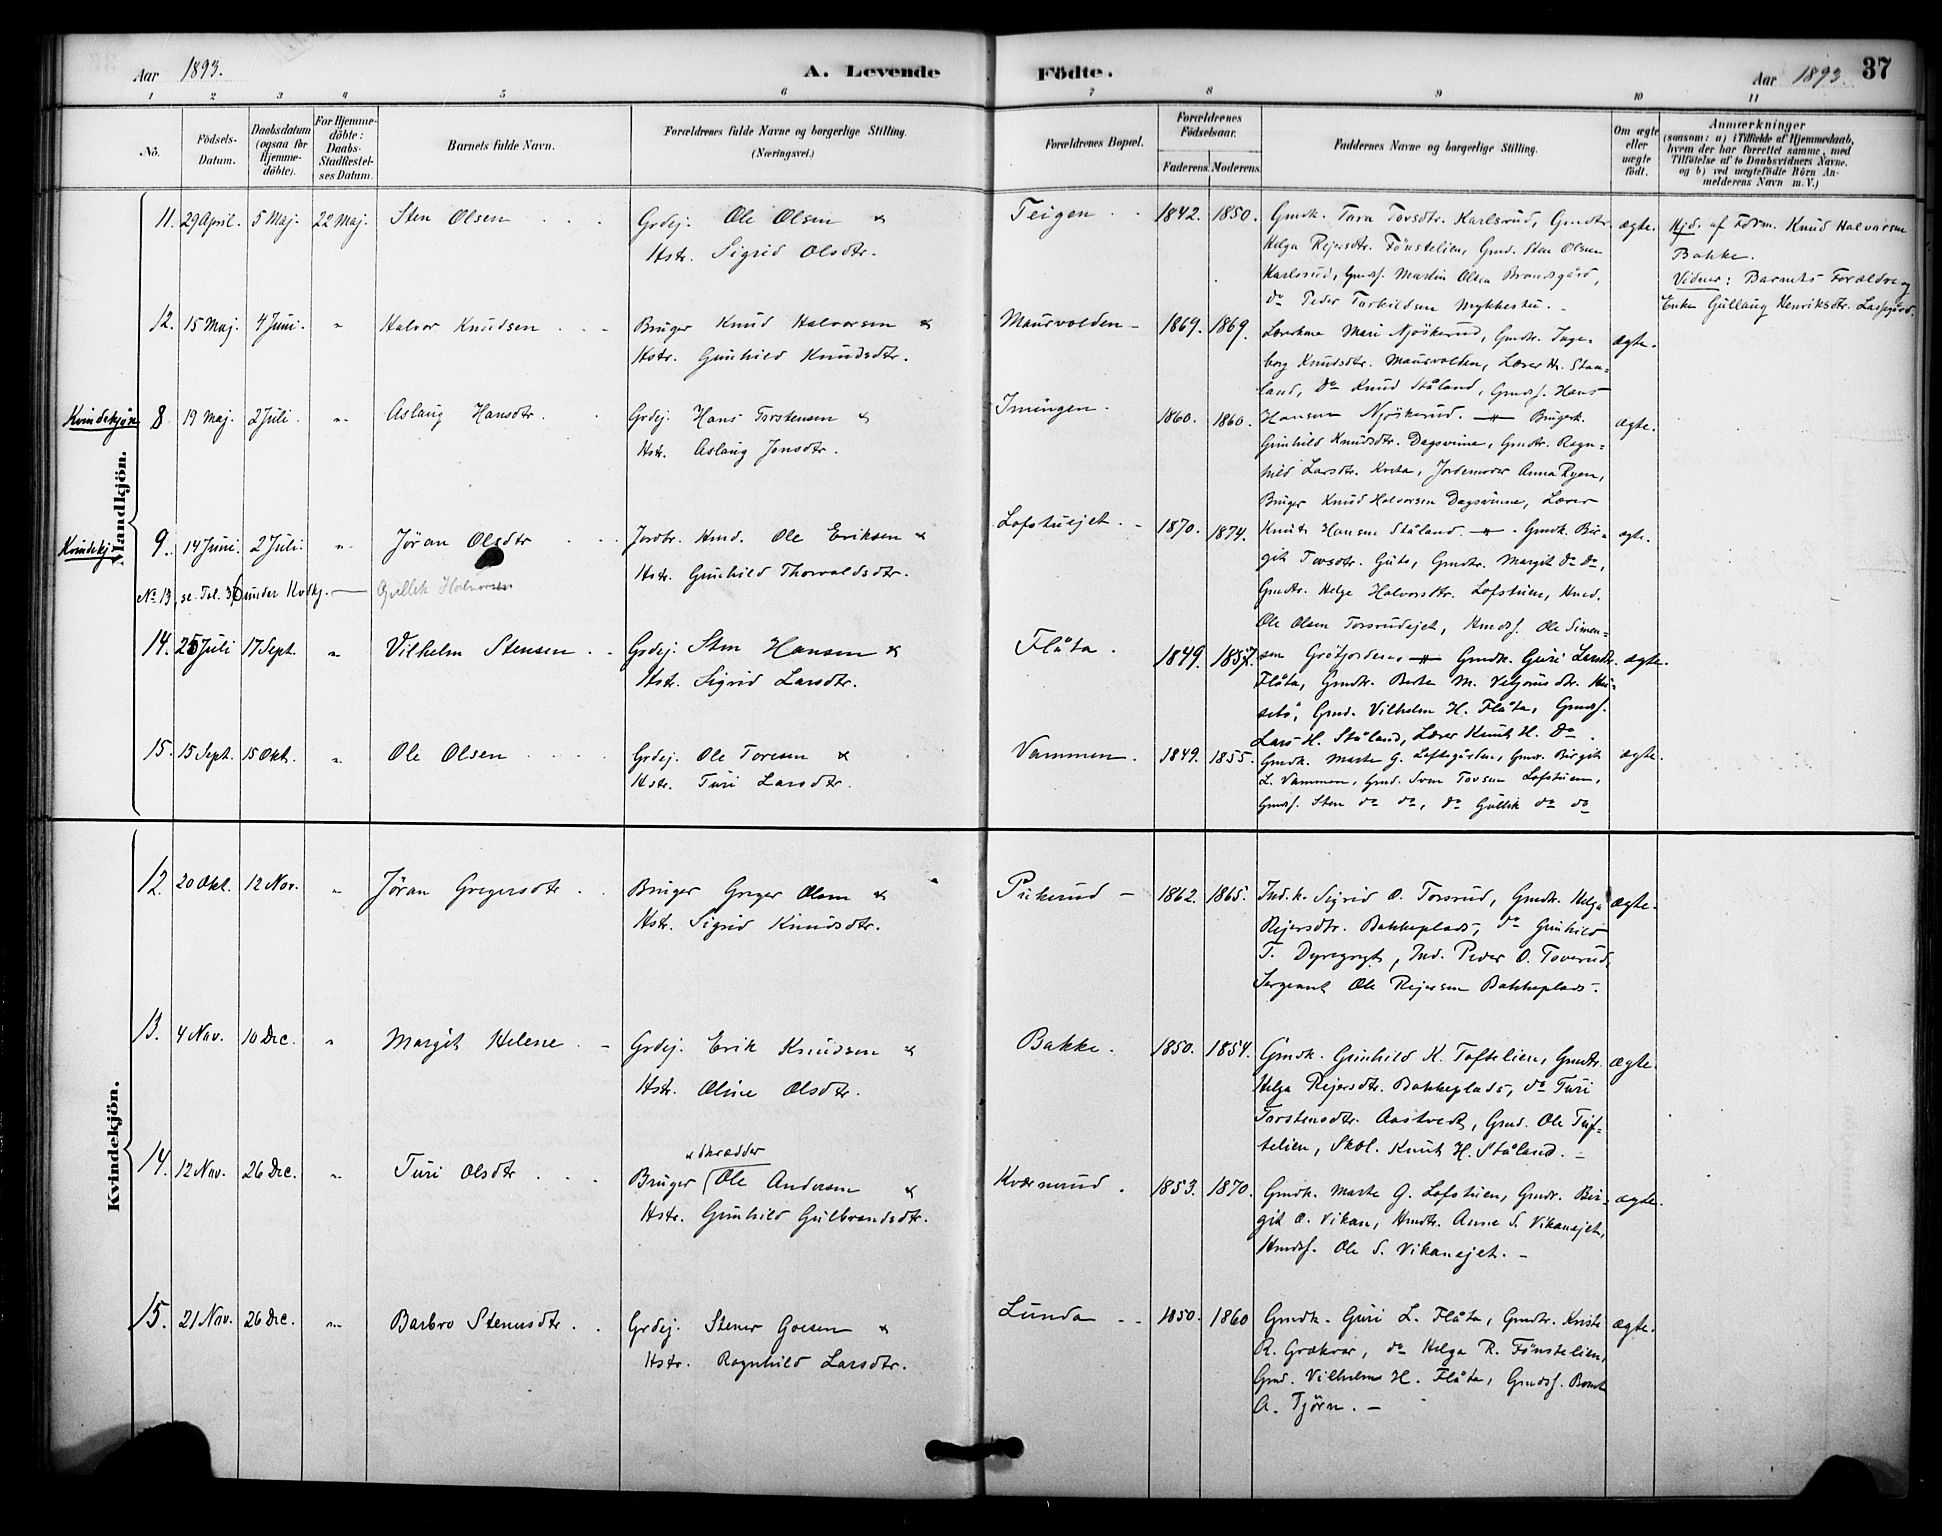 Aar 1893. A. Levende Födte. Aar 1893. 37
1 2 3 4 5 6 7 8 9 10 11
Nô.
Födsels-Datum.
Daabsdatum (ogsaa för Hjemme-döbte).
For Hjemme-döbte: Daabs-Stadfæstel-ses Datum.
Barnets fulde Navn.
Forældrenes fulde Navne og borgerlige Stilling. (Næringsvei.)
Forældrenes Bopæl.
Forældrenes Födselsaar.
Faderens. Moderens.
Faddernes Navne og borgerlige Stilling.
Om ægte eller uægte födt.
Anmærkninger (saasom: a) i Tilfælde af Hjemmedaab, hvem der har forrettet samme, med Tilföielse af to Daabsvidners Navne, og b) ved uægtefödte Börn An-melderens Navn m. V.)
Mandkjön.
11. 29 April. 5 Maj. 22 Maj. Sten Olsen Grdej. Ole Olsen &
Hstr. Sigrid Olsdtr.
Teigen 1842. 1850. Gmdk. Tora Tovsdtr. Karlsrud, Gmdtr.
Helga Rejersdtr. Fönstelien, Gmd. Sten Olsen
Karlsrud, Gmds. Martin Olsen Brandsgård,
do Peder Torbildsen Mykkestu. ægte.
Hjd. af Fdrm. Knud Halvorsen
Bakke.
Vidner: Barnets Forældre og
Enke Gullaug Henriksdtr.
12. 15 Maj. 4 Juni. " Halvor Knudsen Bruger Knud Halvorsen &
Hstr. Gunhild Knudsdtr.
Maurvolden 1869. 1869. Lærerkone Mari Njöskerud, Gmdtr. Inge-
borg Knudsdtr. Maurvolden, Lærer H. Staa-
land, Do Knud Ståland, Gmds. Hans
Hansen Njöskerud. ægte.
Kvindekjön 8. 19 Maj. 2 Juli. " Aslaug Hansdtr. Grdej. Hans Torstensen &
Hstr. Aslaug Jonsdtr.
Imingen. 1860. 1860. Brugerk.
Gunhild Knudsdtr. Dagsvinne, Gmdtr. Ragn-
hild Larsdtr. Jordemoder Anna Ryen,
Bruger Knud Halvorsen Dagsvinne, Lærer
Knut Hansen Ståland. ægte.
Kvindekj. 9. 14 Juni. 2 Juli. " Jöran Olsdtr Jordbr. Hmd. Ole Eriksen &
Hstr. Gunhild Thorvaldsdtr.
Lofstuejet. 1870. 1874. Gmdk. Bir-
git Tovsdtr. Guto, Gmdtr. Margit do do,
Gmdtr. Helge Halvorsdtr. Lofstuen, Hmd.
Ole Olsen Torsrudejet, Hmds. Ole Simen-
sen Gröfjorden. ægte.
No 13, se Fol. 36 under Kvdkj. Gullik Halvorsen
14. 25 Juli 17 Sept. " Vilhelm Stensen Grdej. Sten Hansen &
Hstr. Sigrid Larsdtr.
Flåta. 1849. 1857. Gmdk. Guri Larsdtr.
Flåta, Gmdtr. Berte M. Vetjonsdtr. Hu-
sebö, Gmd. Vilhelm H. Flåta, Gmds.
Lars H. Ståland, Lærer Knut H. Do. ægte.
15. 15 Sept. 15 Okt. " Ole Olsen Grdej. Ole Toresen &
Hstr. Turi Larsdtr.
Vammen. 1849. 1855. Gmdk. Marte G. Loftsgården, Gmdr. Birgit
L. Vammen, Gmd. Sven Tovsen Lofstuen,
Gmds. Sten do do, do Gullik do do ægte.
Kvindekjön.
12. 20 Okt. 12 Nov. " Jöran Gregersdtr. Bruger Greger Olsen &
Hstr. Sigrid Knudsdtr.
Prikerud 1862. 1865. Ind.k. Sigrid O. Torsrud, Gmdk. Helga
Rejersdtr. Bakkeplads, do Gunhild
T. Dyregrygt, Ind. Peder O. Toverud,
Sergeant Ole Rejersen Bakkeplads. ægte.
13. 4 Nov. 10 Dec. " Margit Helene Grdej. Erik Knudsen &
Hstr. Oline Olsdtr.
Bakke. 1850. 1854. Gmdk. Gunhild K. Toftelien, Gmdtr.
Helga Rejersdtr. Bakkeplads, do Turi
Torstensdtr. Aastvedt, Gmd. Ole Tuf-
telien, Skol. Knut H. Ståland. ægte.
14. 12 Nov. 26 Dec. " Turi Olsdtr Bruger & Skrædder Ole Andersen &
Hstr. Gunhild Gulbrandsdtr.
Kværnrud. 1853. 1870. Gmdk. Marte G. Lofstuen, Gmdr. Bir-
git O. Vikan, Hmdtr. Anne S. Vikanejet,
Hmds. Ole S. Vikanejet. ægte.
15. 21 Nov. 26 Dec. " Barbro Stenersdtr. Grdej. Stener Goesen &
Hstr. Ragnhild Larsdtr.
Lunda 1850. 1860 Gmdk. Guri L. Flåta, Gmdtr. Kristi
R. Grækvar, do Helga R. Fönstelien,
Gmd. Vilhelm H. Flåta, Gmds.
A. Tjörn. ægte.